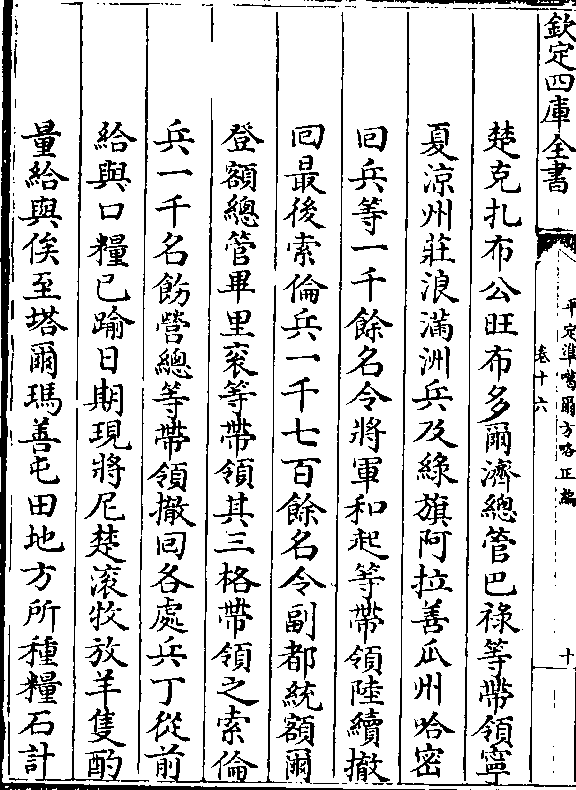 欽定四庫全書
平定準噶爾方略正編
卷十六
十
楚克扎布公旺布多爾濟總管巴祿等帶領寧
夏涼州莊浪滿洲兵及綠旗阿拉善瓜州哈密
回兵等一千餘名令將軍和起等帶領陸續撤
回最後索倫兵一千七百餘名令副都統額爾
登額總管畢里衮等帶領其三格帶領之索倫
兵一千名飭營總等帶領撤回各處兵丁從前
給與口糧已踰日期現將尼楚滚牧放羊隻酌
量給與俟至塔爾瑪善屯田地方所種糧石計